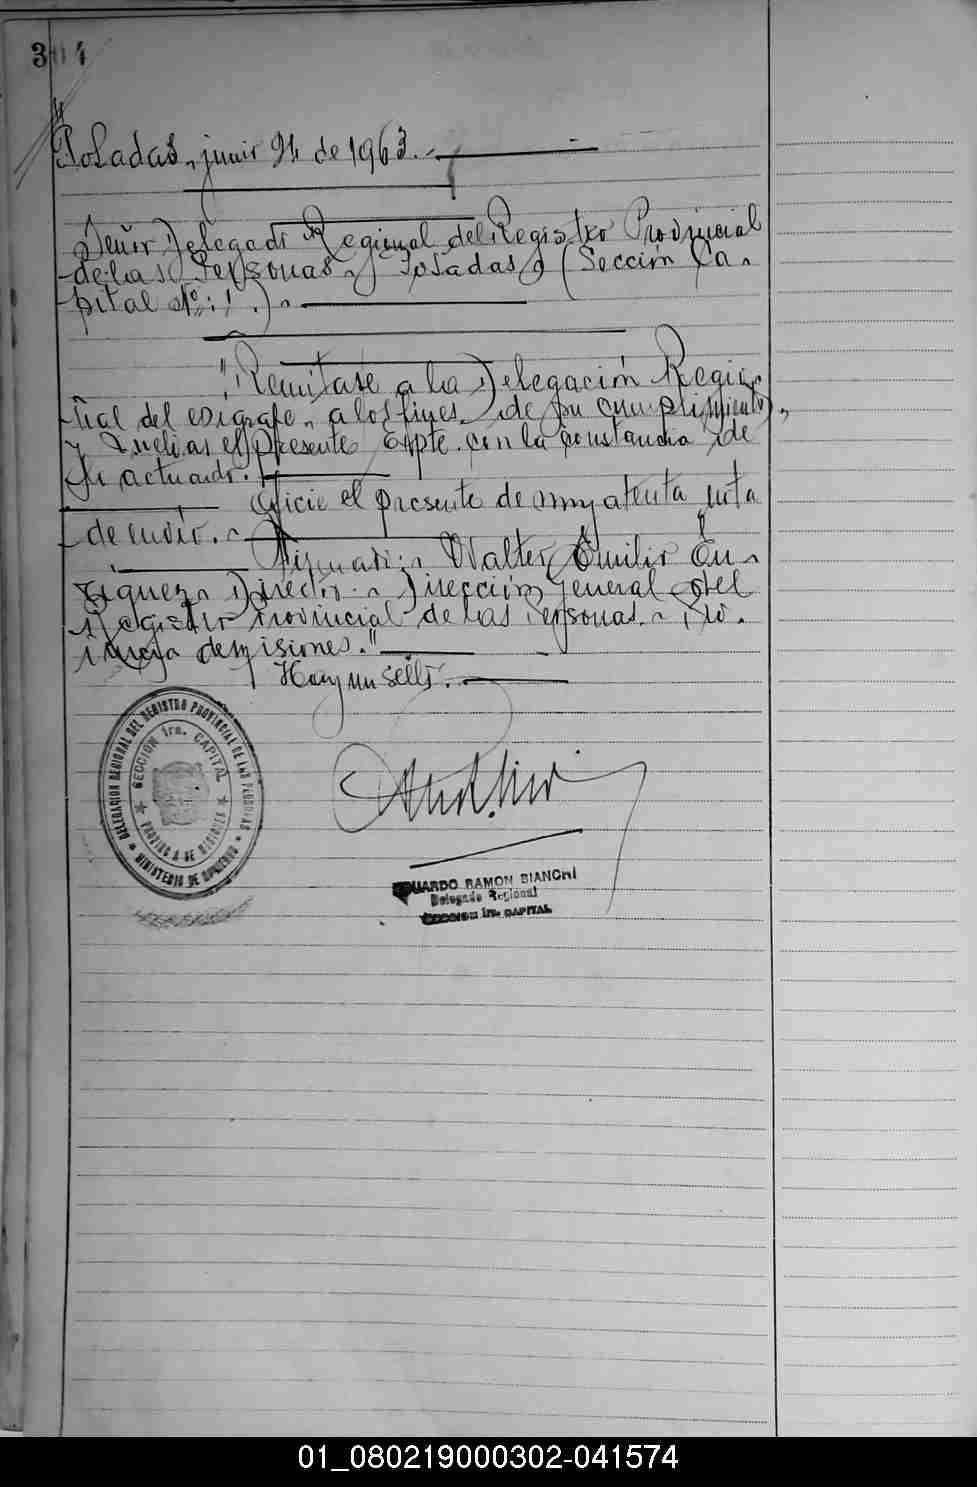 304
"Posadas, junio 24 de 1963.-
Señor Delegado Regional del Registro Provincial
de las Personas - Posadas, (Sección Ca-
pital Nº: 1.)-
"Remítase a la Delegación Regio-
nal del epígrafe, a los fines de su cumplimiento,
y vuelva el presente Expte. con la constancia de
lo actuado.
Oficie el presente de muy atenta nota
de envío.-
Firmado: Walter Emilio En-
riquez - Director - Dirección General del
Registro Provincial de las Personas - Pro-
vincia de Misiones."
Hay un sello.-
DELEGACION REGIONAL DEL REGISTRO PROVINCIAL DE LAS PERSONAS
SECCION 1ra. CAPITAL
PROVINCIA DE MISIONES
MINISTERIO DE GOBIERNO
EDUARDO RAMON BIANCHI
Delegado Regional
SECCION 1ra. CAPITAL
01_080219000302-041574